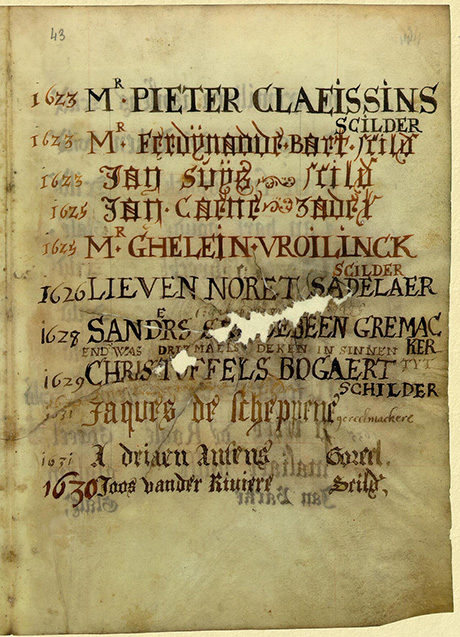 43
1623 MR. PIETER CLAEISSINS
SCILDER
1623 MR. Ferdÿnande. Bart. scild
1623 Jan Suÿs scild
1625 Jan. Caene zadel
1625 MR. GHELEIN. VROILINCK
SCILDER
1626 LIEVEN NORET SADELAER
1628 SANDERS BEEN GREMAC
KER
END WAS DRIEMAELS DEKEN IN SINNEN TYT
1629 CHRISTOFFELS BOGAERT
SCHILDER
1631 Jaques de schepnene gereelmackere
1631 Adriaen Antens Goreel.
1630 Joos vander Riviere Scild.